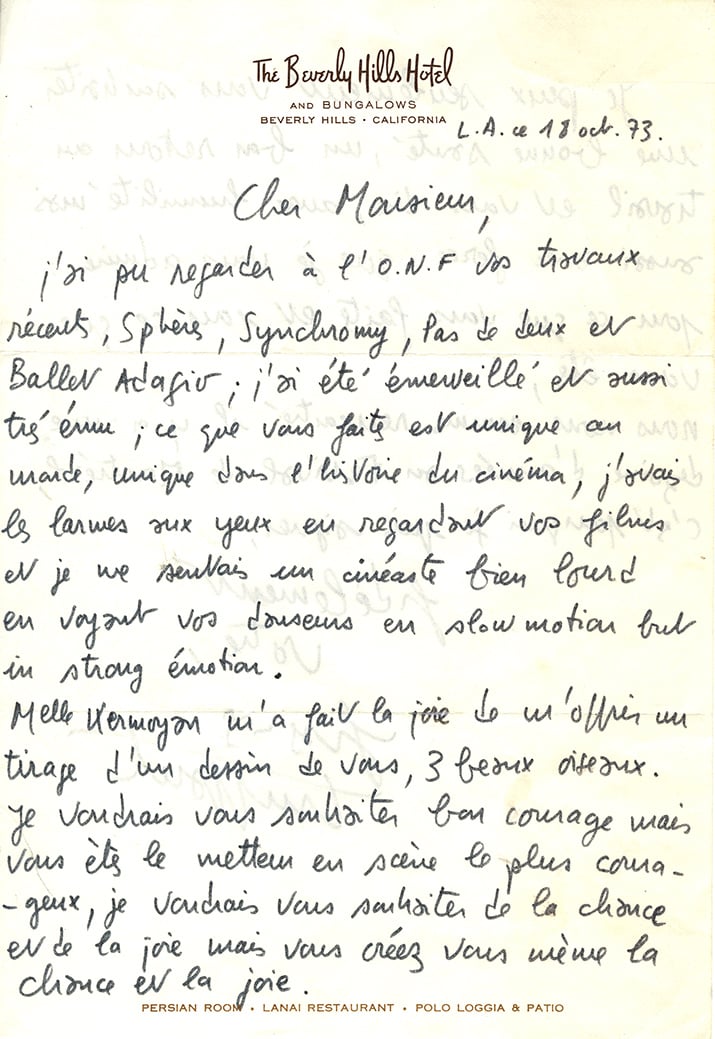 The Beverly Hills Hotel
AND BUNGALOWS
BEVERLY HILLS · CALIFORNIA
L.A. ce 18 oct. 73.
Cher Monsieur,
j'ai pu regarder à l'O.N.F vos travaux
récents, Sphères, Synchromy, Pas de deux et
Ballet Adagio ; j'ai été émerveillé et aussi
très ému ; ce que vous faites est unique au
monde, unique dans l'histoire du cinéma, j'avais
les larmes aux yeux en regardant vos films
et je me sentais un cinéaste bien lourd
en voyant vos danseurs en slow motion but
in strong émotion.
Melle Kermoyan m'a fait la joie de m'offrir un
tirage d'un dessin de vous, 3 beaux oiseaux.
Je voudrais vous souhaiter bon courage mais
vous êtes le metteur en scène le plus coura-
-geux, je voudrais vous souhaiter de la chance
et de la joie mais vous créez vous même la
chance et la joie.
PERSIAN ROOM · LANAI RESTAURANT · POLO LOGGIA & PATIO